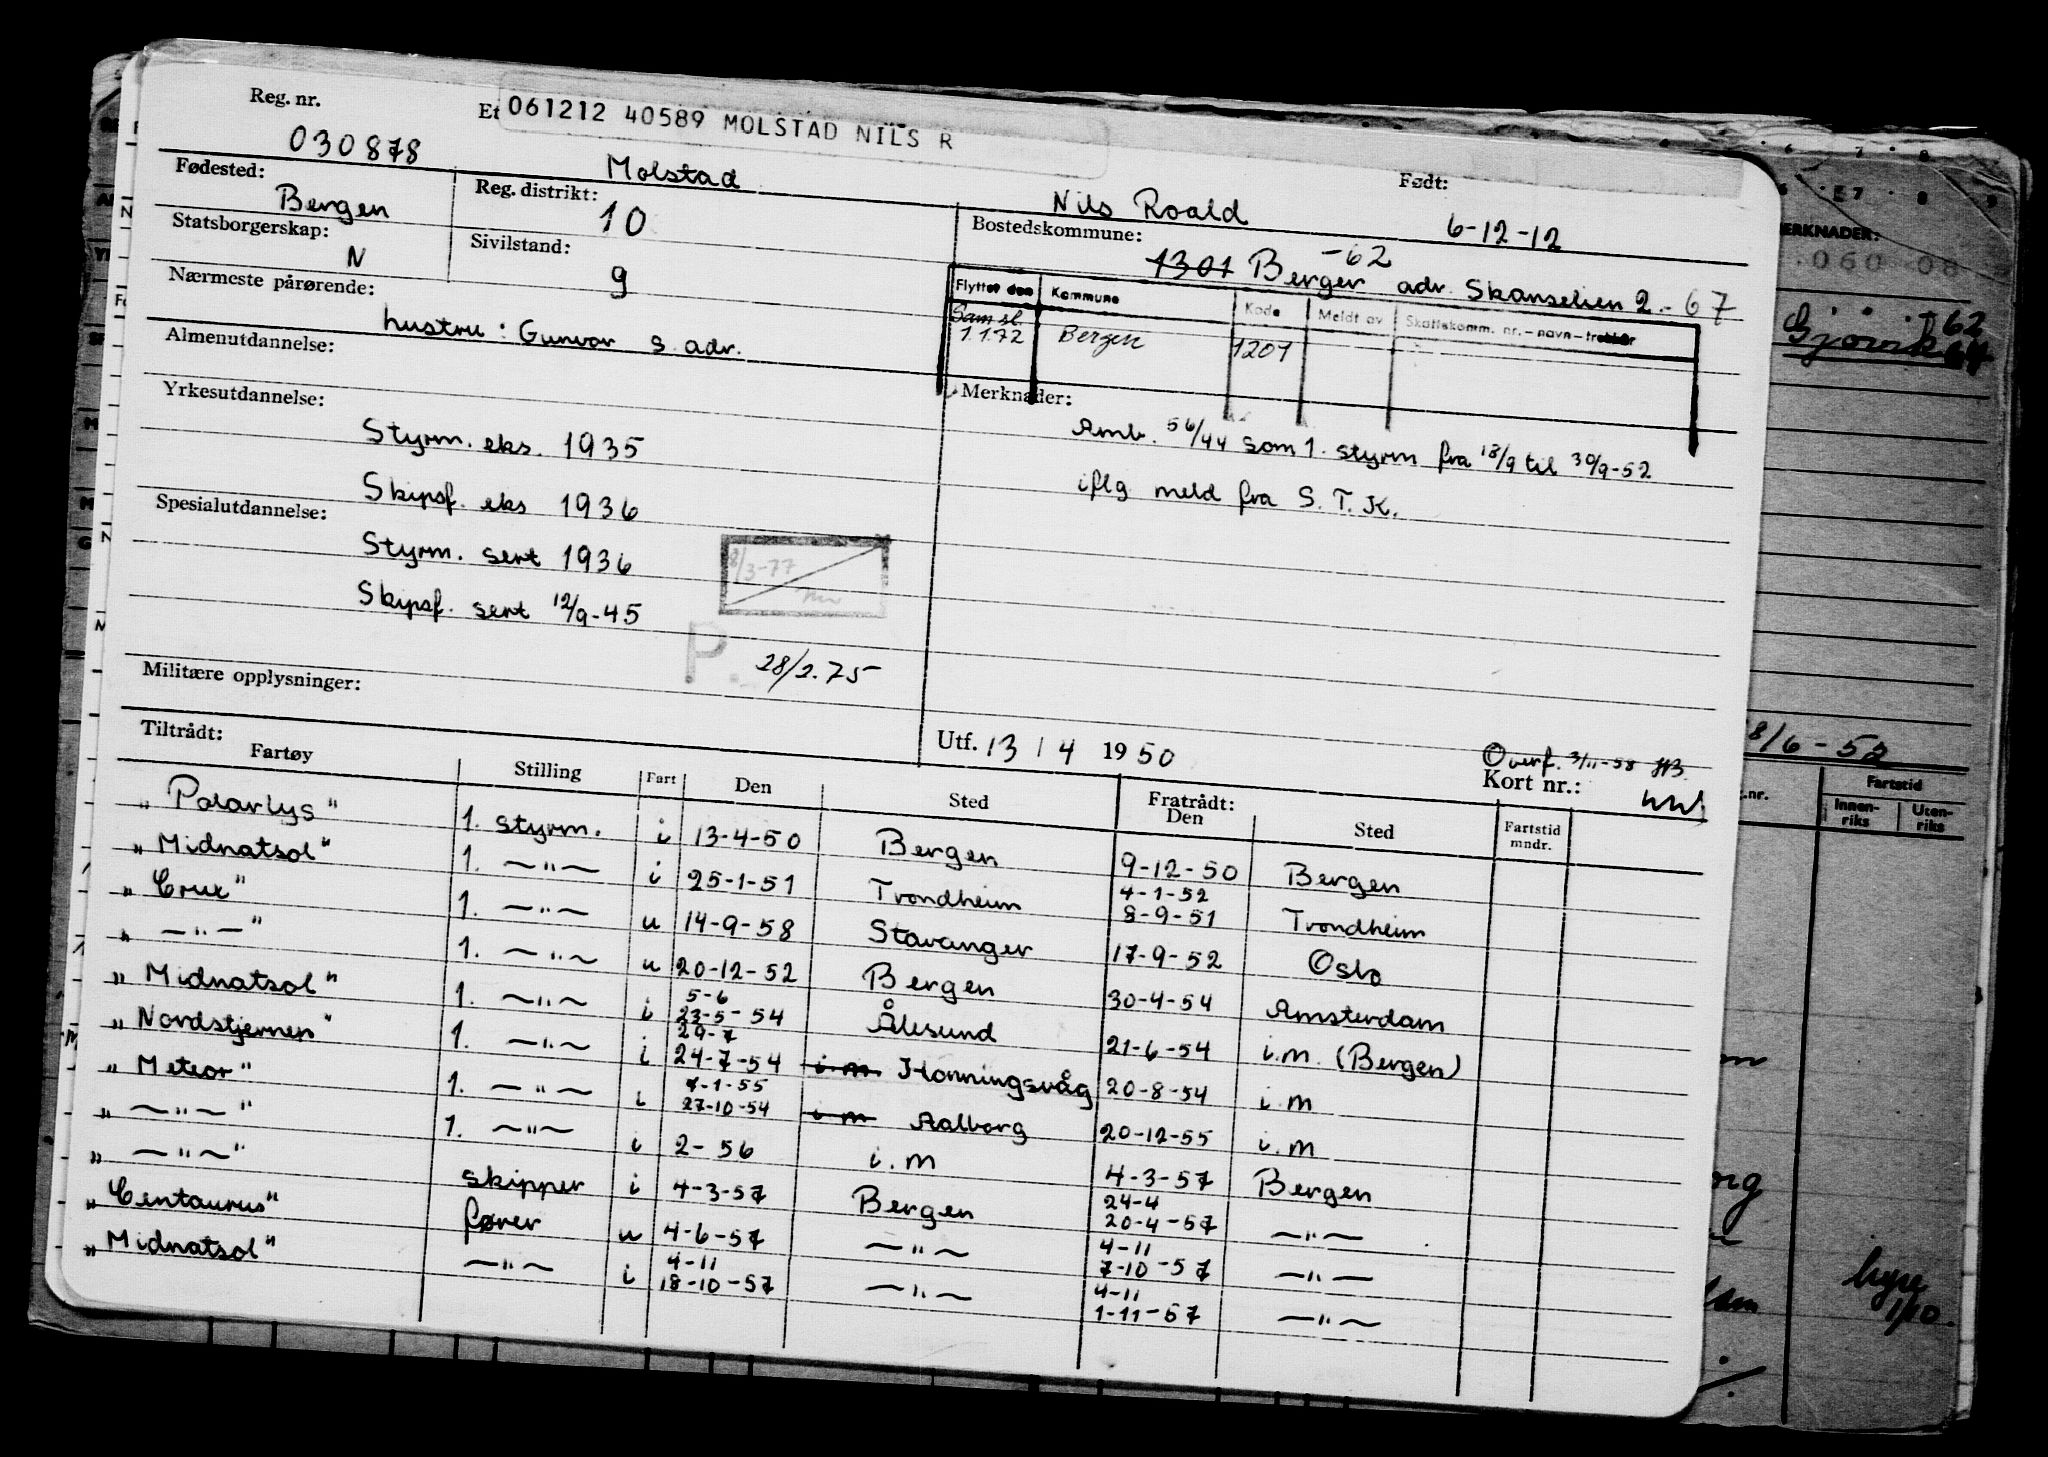 Reg. nr. Et 061212 40589 MOLSTAD NILS R
030878 Molstad Nils Roald Født: 6-12-12
Fødested: Bergen Reg. distrikt: 10 Bostedskommune: 1301 Bergen -62 adr. Skanselien 2.-67
Statsborgerskap: N Sivilstand: g
Flyttet den Kommune Kode Meldt av Skattekomm. nr. – navn – trekkår
Sam.sl. 1.1.72 Bergen 1201
Nærmeste pårørende: hustru: Gunvor s. adr.
Almenutdannelse:
Yrkesutdannelse: Merknader:
Styrm. eks. 1935
Skipsf. eks 1936
Amb. 56/44 som 1. styrm fra 18/9 til 30/9-52
iflg meld fra S.T.K.
Spesialutdannelse:
Styrm. sert 1936
Skipsf. sert 12/9-45
8/3-77
P. 28/2.75
Militære opplysninger:
Utf. 13/4 1950 Overf. 3/11-58
Kort nr.:
Tiltrådt: Fratrådt:
Fartøy Stilling Fart Den Sted Den Sted Fartstid mndr.
"Polarlys" 1. styrm. i 13-4-50 Bergen 9-12-50 Bergen
"Midnatsol" 1. —"— i 25-1-51 Trondheim 4-1-52 8-9-51 Trondheim
"Crux" 1. —"— u 14-9-58 Stavanger 17-9-52 Oslo
"—"—" 1. —"— u 20-12-52 Bergen 30-4-54 Amsterdam
"Midnatsol" 1. —"— i 5-6 23-5-54 Ålesund 21-6-54 i.m. (Bergen)
"Nordstjernen" 1. —"— i 29-7 24-7-54 i.m Honningsvåg 20-8-54 i.m
"Meteor" 1. —"— i 7-1-55 27-10-54 i.m Aalborg 20-12-55 i.m
"—"—" 1. —"— i 2-56 i.m 4-3-57 Bergen
"—"—" skipper i 4-3-57 Bergen 24-4 20-4-57 —"—
"Centaurus" fører u 4-6-57 —"— 4-11 7-10-57 —"—
"Midnatsol" —"— i 4-11 18-10-57 —"— 4-11 1-11-57 —"—
MERKNADER:
060 08
Gjøvik 62
8/6-52
Fartstid
Innen-riks Uten-riks
hyre
1/10.